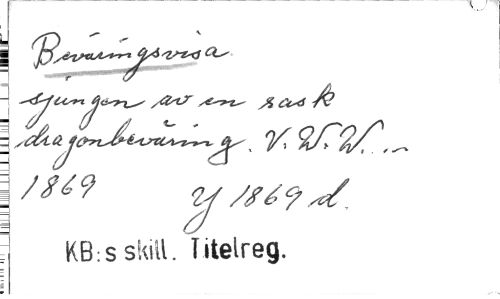 Beväringsvisa
sjungen av en rask
dragonbeväring. V. W. W. ...
1869 Y 1869 d.
KB:s skill. Titelreg.